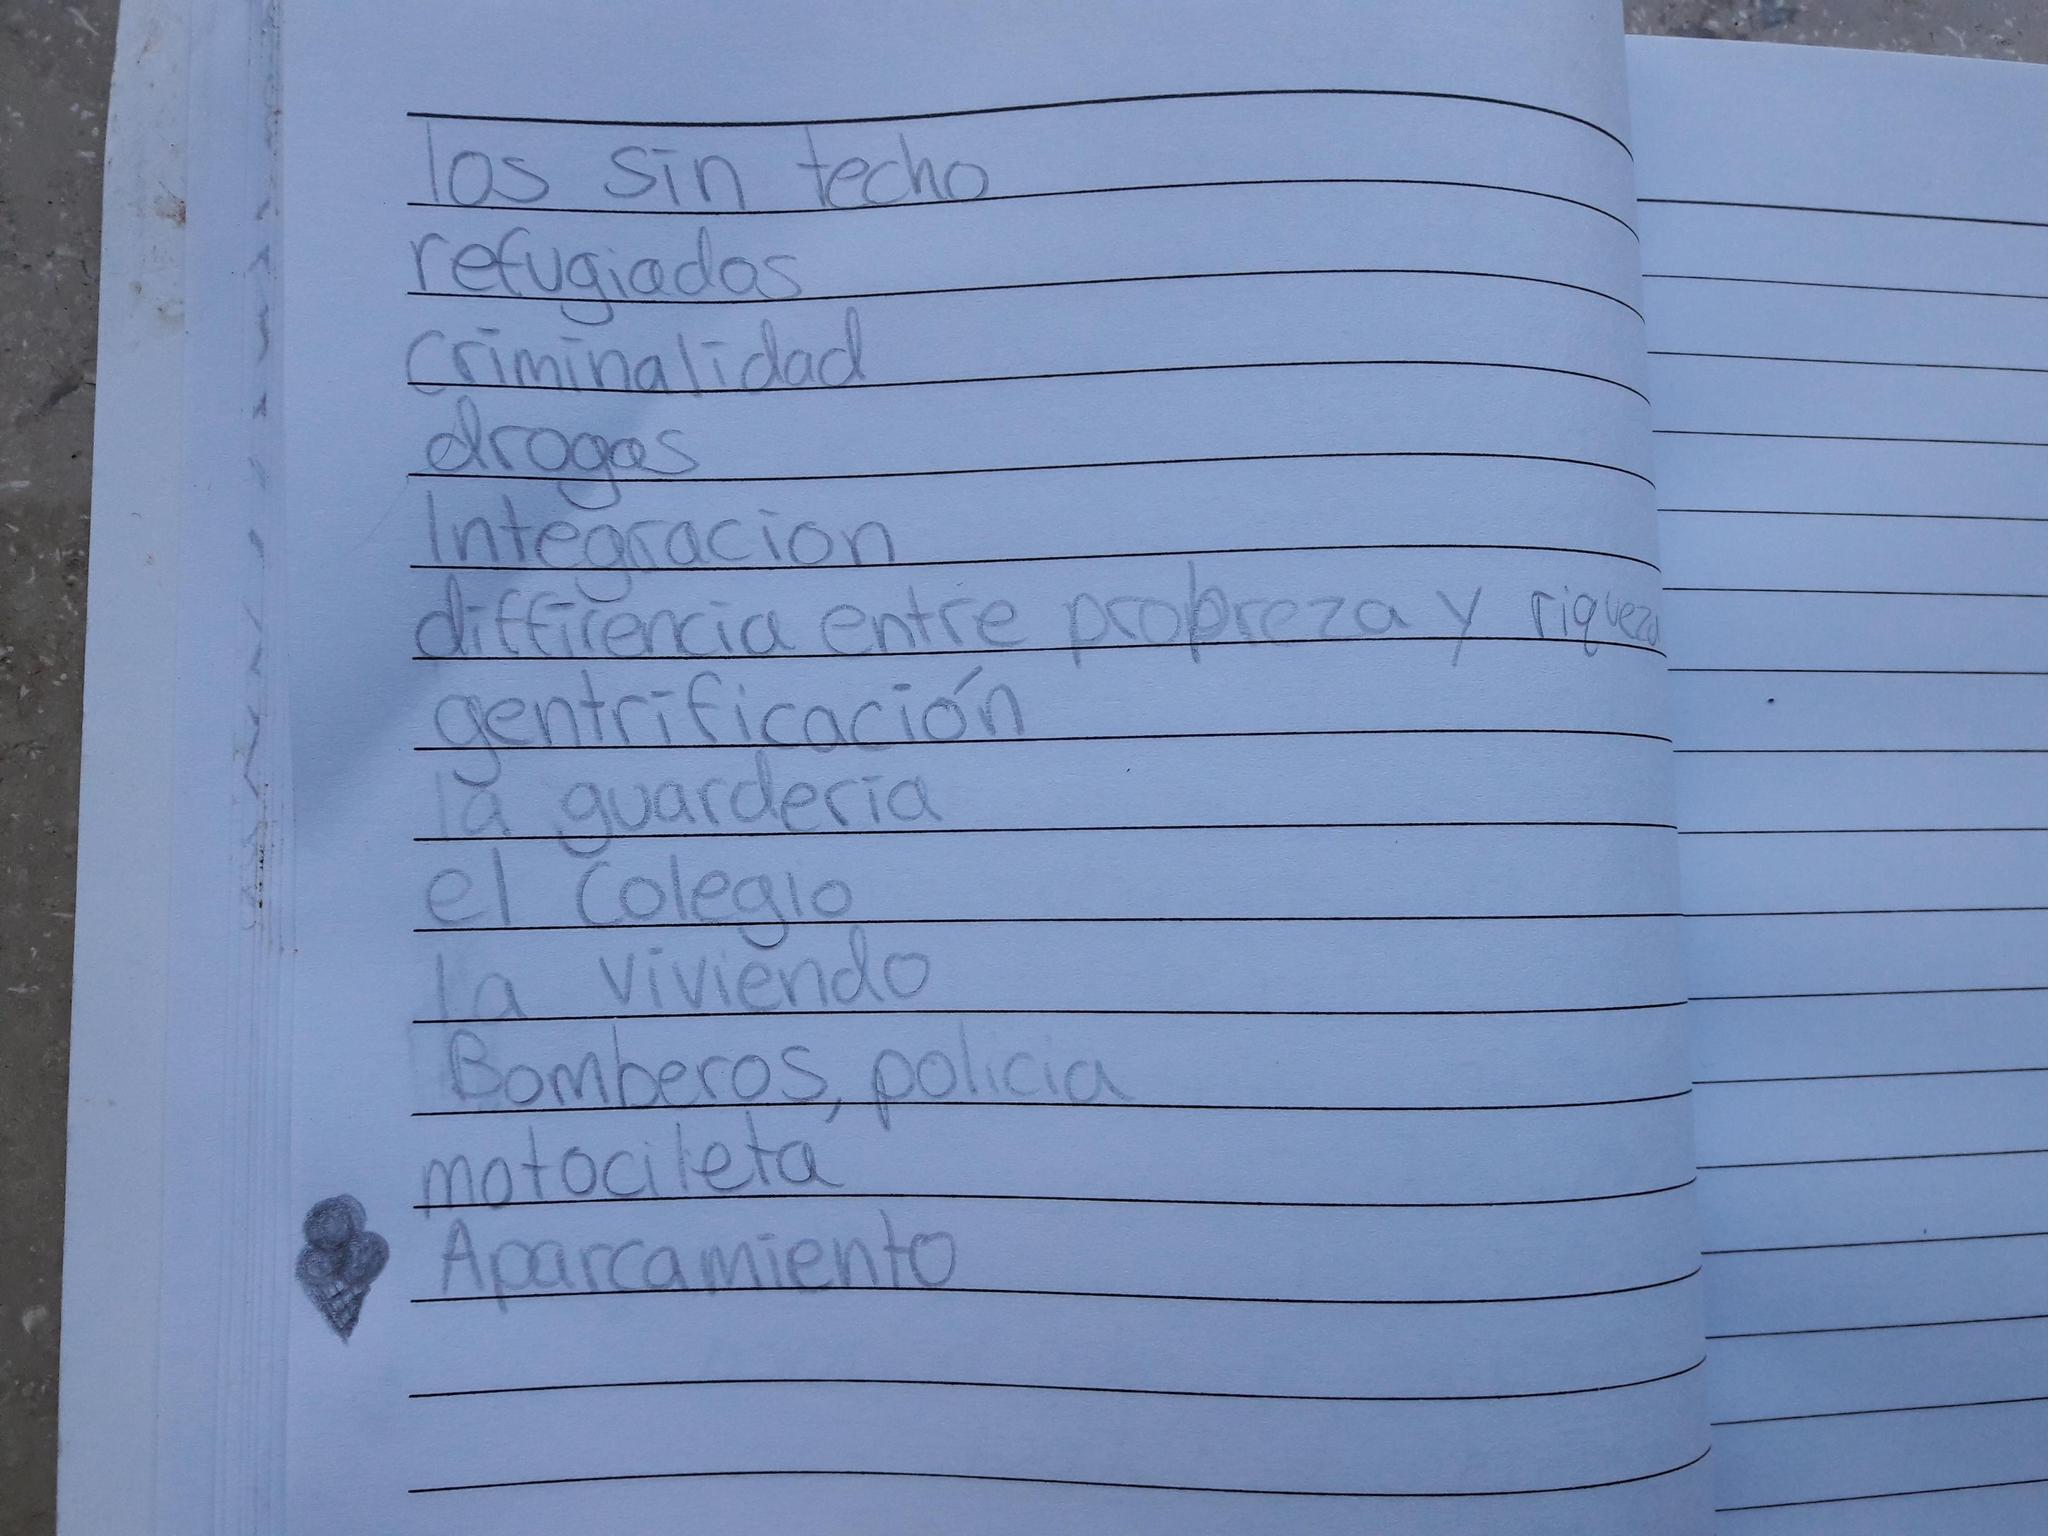 los sin techo
refugiados
criminalidad
drogas
Integracion
diffirencia entre probreza y riqueza
gentrificación
la guarderia
el colegio
la viviendo
Bomberos, policia
motocileta
Aparcamiento